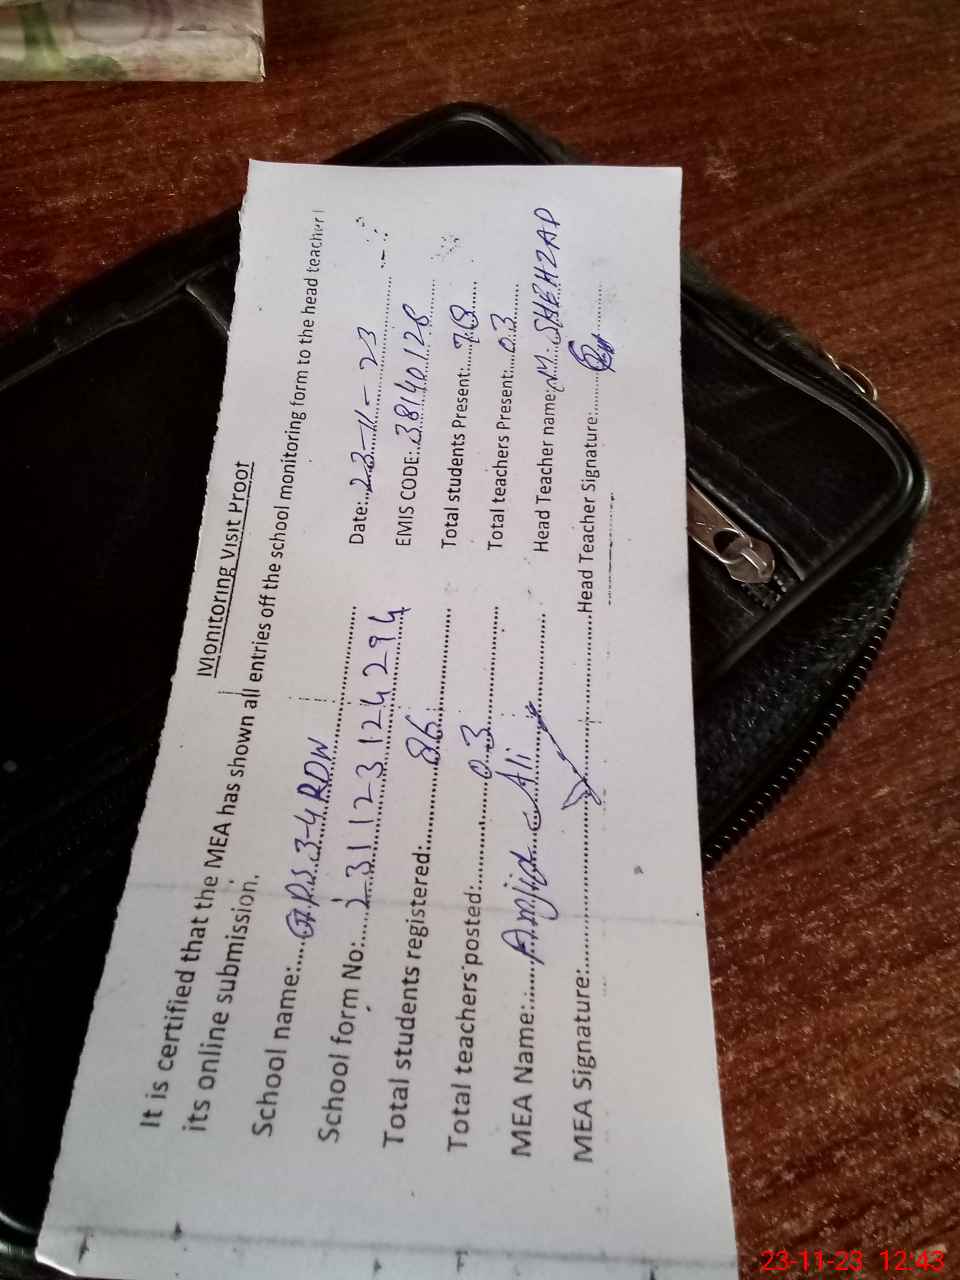 Monitoring Visit Proof
It is certified that the MEA has shown all entries off the school monitoring form to the head teacher
its online submission.
School name: G.P.S 3-4 RDW Date: 23-11-23
School form No: 231123124294 EMIS CODE: 38140128
Total students registered: 86 Total students Present: 78
Total teachers posted: 03 Total teachers Present: 03
MEA Name: Amjid Ali Head Teacher name M. SHEHZAD
MEA Signature: Head Teacher Signature:
23-11-23 12:43